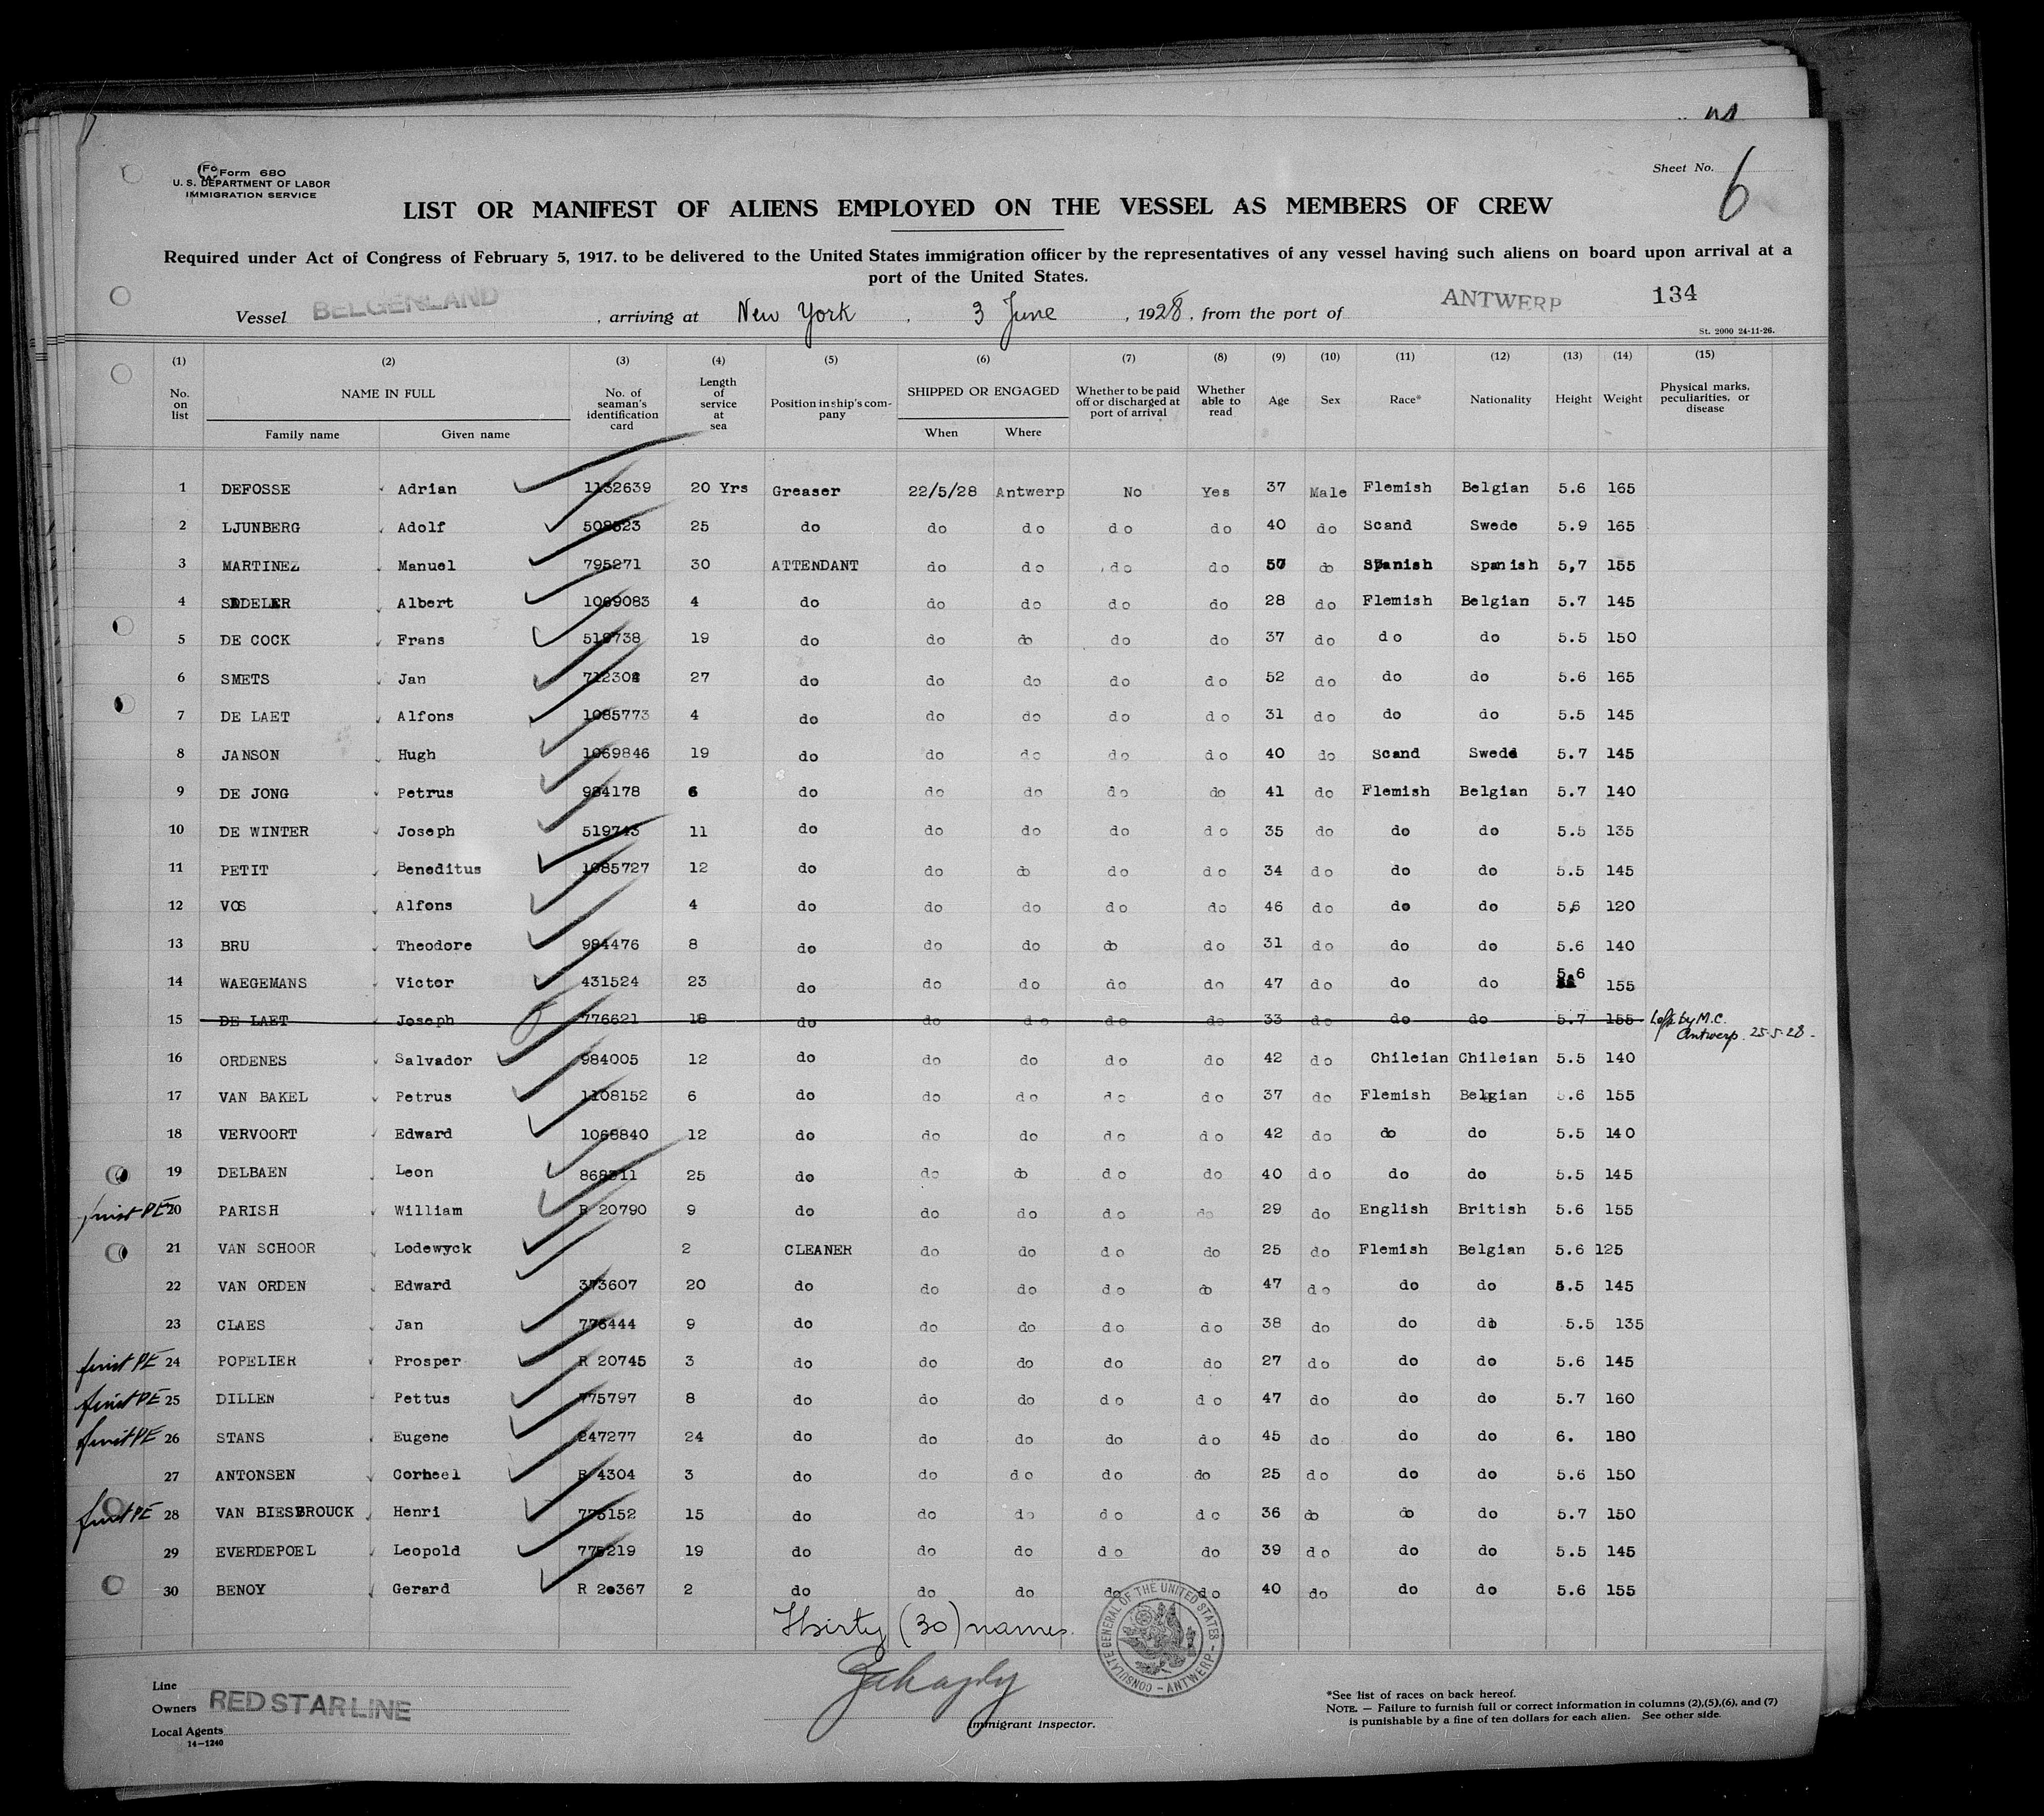 Form 680
U. S. DEPARTMENT OF LABOR
IMMIGRATION SERVICE
Sheet No. 6
LIST OR MANIFEST OF ALIENS EMPLOYED ON THE VESSEL AS MEMBERS OF CREW
Required under Act of Congress of February 5, 1917. to be delivered to the United States immigration officer by the representatives of any vessel having such aliens on board upon arrival at a
port of the United States.
Vessel BELGENLAND , arriving at New York , 3 June , 1928 , from the port of ANTWERP 134
St. 2000 24-11-26.
(1) (2) (3) (4) (5) (6) (7) (8) (9) (10) (11) (12) (13) (14) (15)
No. on list NAME IN FULL Family name Given name No. of seaman's identification card Length of service at sea Position in ship's company SHIPPED OR ENGAGED When Where Whether to be paid off or discharged at port of arrival Whether able to read Age Sex Race* Nationality Height Weight Physical marks, peculiarities, or disease
1 DEFOSSE Adrian 1132639 20 Yrs Greaser 22/5/28 Antwerp No Yes 37 Male Flemish Belgian 5.6 165
2 LJUNBERG Adolf 508523 25 do do do do do 40 do Scand Swede 5.9 165
3 MARTINEZ Manuel 795271 30 ATTENDANT do do do do 57 do Spanish Spanish 5,7 155
4 SADELER Albert 1069083 4 do do do do do 28 do Flemish Belgian 5.7 145
5 DE COCK Frans 519738 19 do do do do do 37 do do do 5.5 150
6 SMETS Jan 27 do do do do do 52 do do do 5.6 165
7 DE LAET Alfons 1085773 4 do do do do do 31 do do do 5.5 145
8 JANSON Hugh 1069846 19 do do do do do 40 do Scand Swede 5.7 145
9 DE JONG Petrus 984178 6 do do do do do 41 do Flemish Belgian 5.7 140
10 DE WINTER Joseph 519743 11 do do do do do 35 do do do 5.5 135
11 PETIT Beneditus 1085727 12 do do do do do 34 do do do 5.5 145
12 VOS Alfons 4 do do do do do 46 do do do 5,6 120
13 BRU Theodore 984476 8 do do do do do 31 do do do 5.6 140
14 WAEGEMANS Victor 431524 23 do do do do do 47 do do do 5.6 155
15 DE LAET Joseph 776621 18 do do do do do 33 do do do 5.7 155 Left by M.C.
Antwerp. 25-5-28-
16 ORDENES Salvador 984005 12 do do do do do 42 do Chileian Chileian 5.5 140
17 VAN BAKEL Petrus 1108152 6 do do do do do 37 do Flemish Belgian 5.6 155
18 VERVOORT Edward 1068840 12 do do do do do 42 do do do 5.5 140
19 DELBAEN Leon 868311 25 do do do do do 40 do do do 5.5 145
first PE 20 PARISH William R 20790 9 do do do do do 29 do English British 5.6 155
21 VAN SCHOOR Lodewyck 2 CLEANER do do do do 25 do Flemish Belgian 5.6 125
22 VAN ORDEN Edward 373607 20 do do do do do 47 do do do 5.5 145
23 CLAES Jan 776444 9 do do do do do 38 do do do 5.5 135
first PE 24 POPELIER Prosper R 20745 3 do do do do do 27 do do do 5.6 145
first PE 25 DILLEN Pettus 775797 8 do do do do do 47 do do do 5.7 160
first PE 26 STANS Eugene 247277 24 do do do do do 45 do do do 6. 180
27 ANTONSEN Corneel R 4304 3 do do do do do 25 do do do 5.6 150
first PE 28 VAN BIESBROUCK Henri 775152 15 do do do do do 36 do do do 5.7 150
29 EVERDEPOEL Leopold 775219 19 do do do do do 39 do do do 5.5 145
30 BENOY Gerard R 20367 2 do do do do do 40 do do do 5.6 155
Thirty (30) names.
CONSULATE GENERAL OF THE UNITED STATES - ANTWERP -
Line
Owners RED STAR LINE
Local Agents
14-1240
Immigrant Inspector.
*See list of races on back hereof.
NOTE. — Failure to furnish full or correct information in columns (2),(5),(6), and (7)
is punishable by a fine of ten dollars for each alien. See other side.